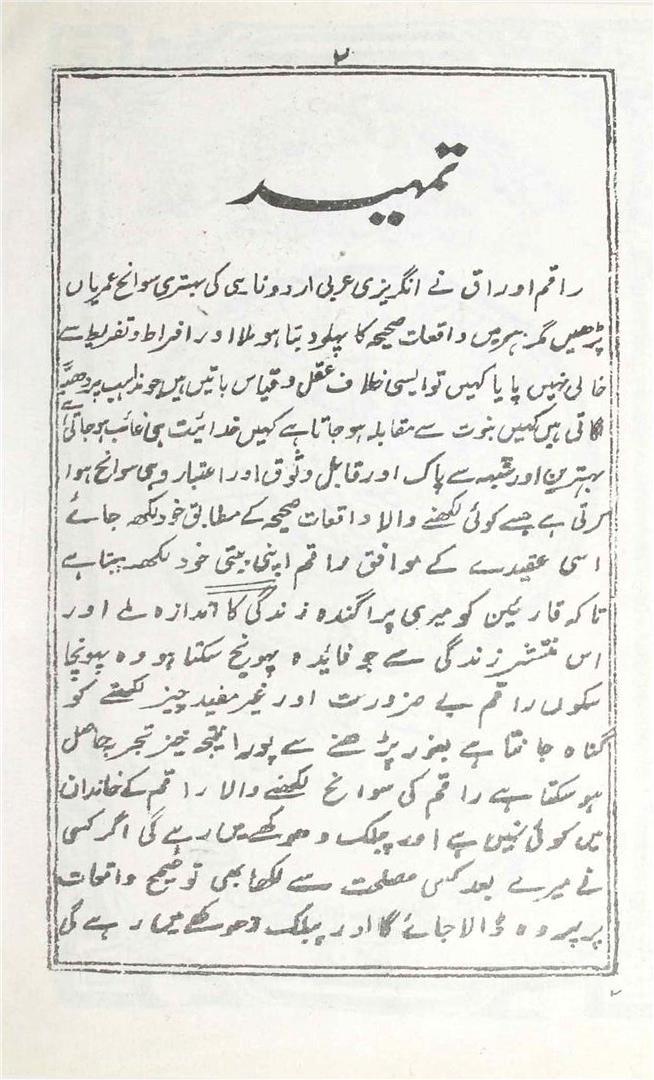 ۲
تمہید
راقم اوراق نے انگریزی عربی اردو فارسی کی بہتری سوانح عمریاں
پڑھیں مگر ہر میں واقعات صحیحہ کا پہلو دبتا ہوا ملا اور افراط و تفریط سے
خالی نہیں پایا کہیں تو ایسی خلاف عقل و قیاس باتیں ہیں جو مذاہب پر دھبہ
لاتی ہیں کہیں نبوت سے مقابلہ ہو جاتا ہے کہیں خدائیت ہی غائب ہو جاتی ہے
بہترین اور شبہہ سے پاک اور قابل وثوق اور اعتبار وہی سوانح ہوا
کرتی ہے جسے کوئی لکھنے والا واقعات صحیحہ کے مطابق خود لکھ جائے
اسی عقیدے کے موافق راقم اپنی بیتی خود لکھ دیتا ہے
تاکہ قارئین کو میری پراگندہ زندگی کا اندازہ ملے اور
اس منتشر زندگی سے جو فائدہ پہونچ سکتا ہو وہ پہونچا
سکوں راقم بے ضرورت اور غیر مفید چیز لکھنے کو
گناہ جانتا ہے بغور پڑھنے سے پورا نتیجہ خیز تجربہ حاصل
ہو سکتا ہے راقم کی سوانح لکھنے والا راقم کے خاندان
میں کوئی نہیں ہے اور پبلک دھوکے میں رہے گی اگر کسی
نے میرے بعد کسی مصلحت سے لکھا بھی تو صحیح واقعات
پر پردہ ڈالا جائے گا اور پبلک دھوکے میں رہے گی